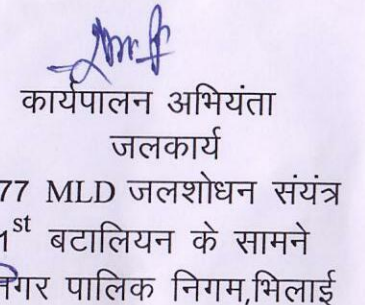 कार्यपालन अभियंता
जलकार्य
77 MLD जलशोधन संयंत्र
1st बटालियन के सामने
नगर पालिक निगम,भिलाई